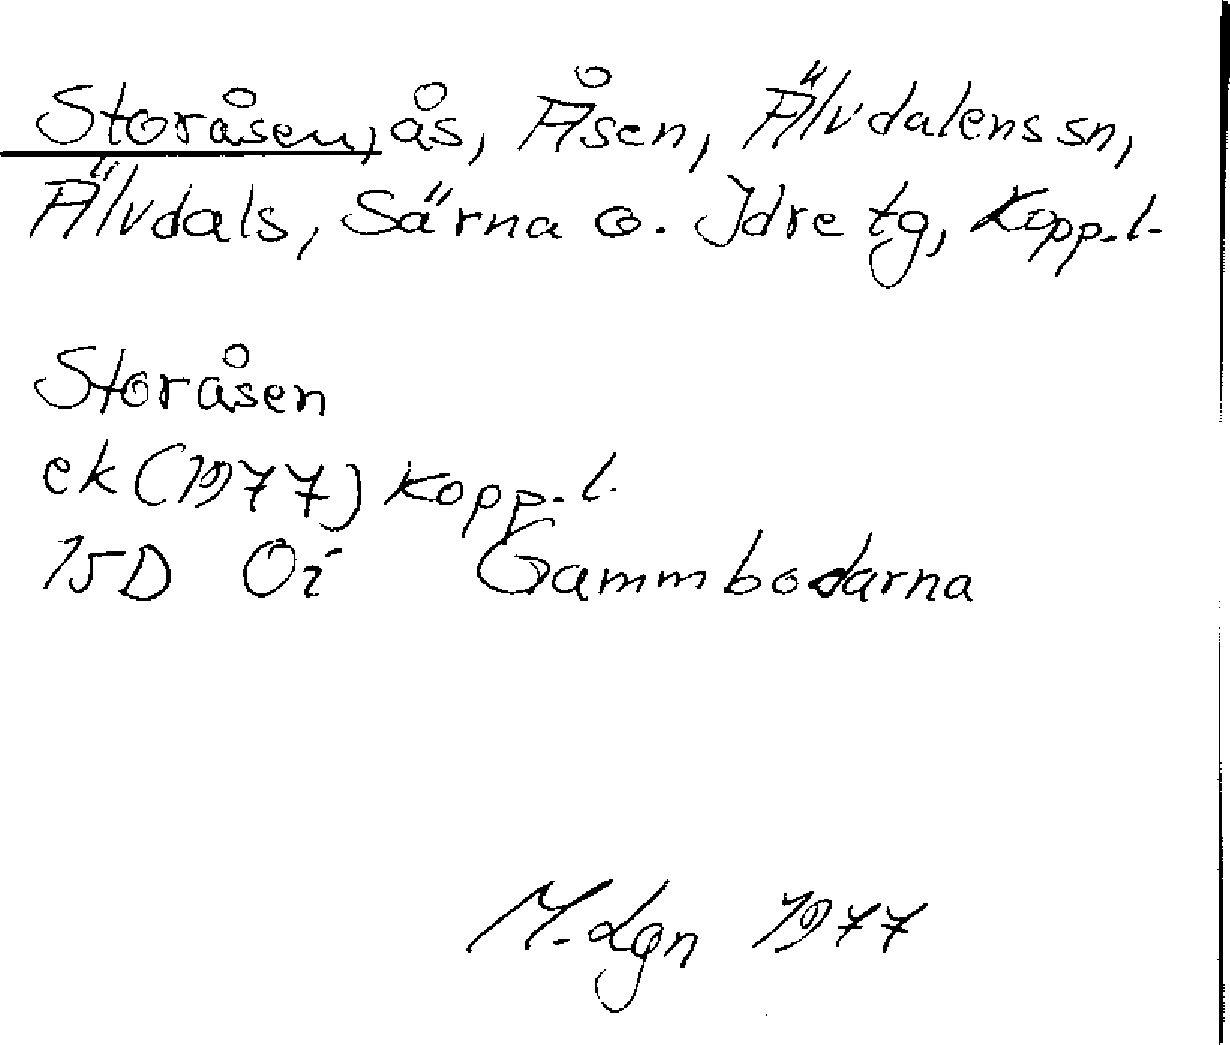 Storåsen, ås, Åsen, Älvdalens sn,
Älvdals, Särna o. Idre tg, Kopp. l.
Storåsen
ek (1977) Kopp. l.
15D Oi Gammbodarna
M. Lgn 1977